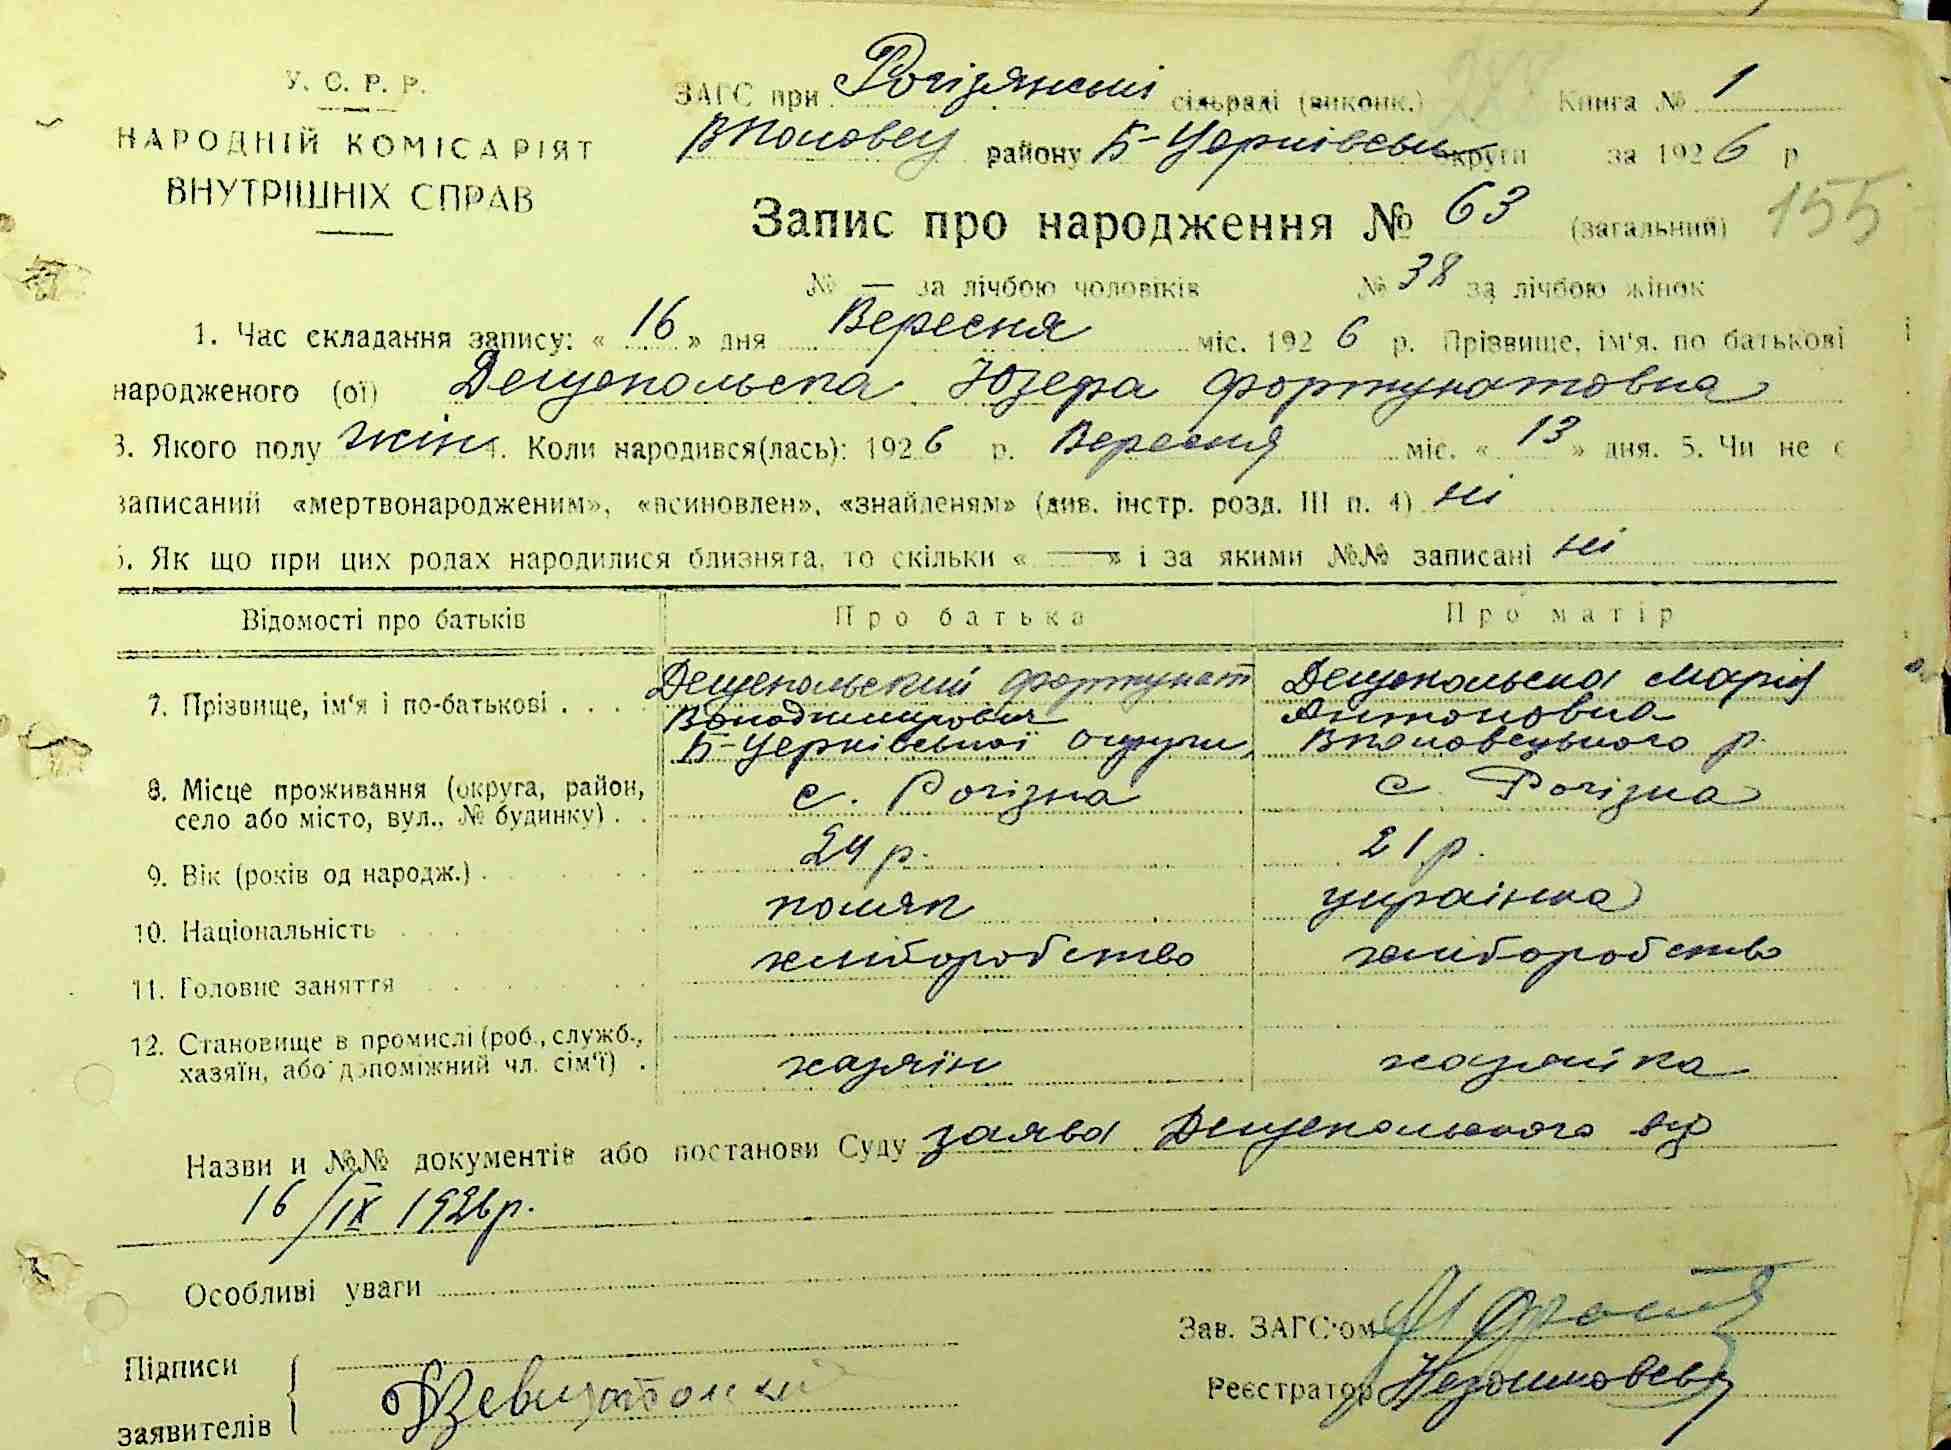 У. С. Р. Р.
НАРОДНІЙ КОМІСАРІЯТ
ВНУТРІШНІХ СПРАВ
ЗАГС при Рогізянскі сільраді (виконк.) Книга № 1
району Б-Церківськ округи за 1926 р
Запис про народження № 63 (загальний) 155
№ — за лічбою чоловіків № 38 за лічбою жінок
1. Час складання запису: « 16 » дня Вересня міс. 1926 р. Прізвище, ім'я, по батькові
народженого (ої) Дещепольска Юзефа Фортунатовна
3. Якого полу жін 4. Коли народився(лась): 1926 р. Вересня міс. « 13 » дня. 5. Чи не є
записаний «мертвонародженим», «всиновлен», «знайденям» (див. інстр. розд. III п. 4) ні
6. Як що при цих родах народилися близнята, то скільки « — » і за якими №№ записані ні
Відомості про батьків Про батька Про матір
7. Прізвище, ім'я і по-батькові . . . . Дещепольский Фортунат Володимирович Дещепольска Марія Антоновна
8. Місце проживання (округа, район, село або місто, вул., № будинку) . . Б-Церківської округи, с. Рогізна р. с. Рогізна
9. Вік (років од народж.) . 24 р. 21 р.
10. Національність поляк українка
11. Головне заняття хліборобство хліборобство
12. Становище в промислі (роб., служб., хазяїн, або допоміжний чл. сім'ї) . хазяїн хазяйка
Назви и №№ документів або постанови Суду заява Дещепольского від
16/IX 1926 р.
Особливі уваги
Зав. ЗАГС'ом
Підписи
Реєстратор
заявителів